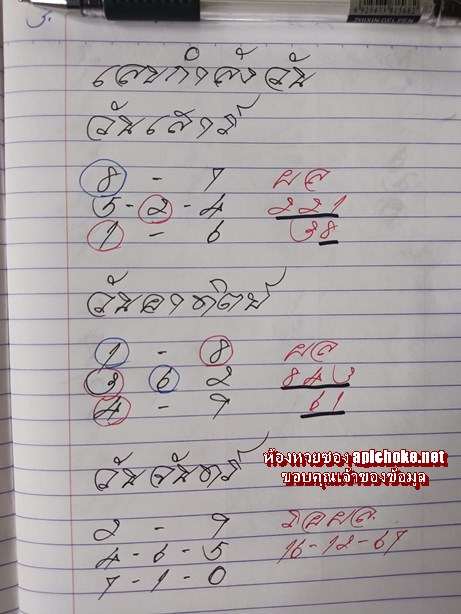 ZHIXIN GELPEN
เลขกำลังวัน
วันเสาร์
8 - 7 ผล
5 - 2 - 4 221
1 - 6 38
วันอาทิตย์
1 - 8 ผล
3 6 2 843
4 - 9 61
วันจันทร์
ห้องหวยซอง apichoke.net
ขอบคุณเจ้าของข้อมูล
2 - 9 รอผล
4 - 6 - 5 16-12-67
7 - 1 - 0